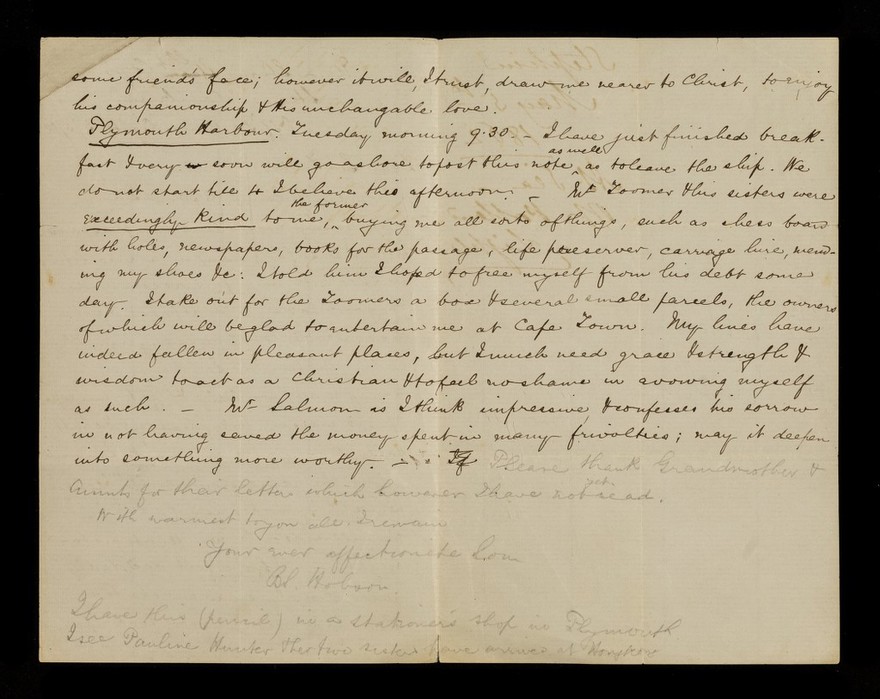 some friend's face; however it will, I trust, draw me nearer to Christ, to enjoy
his companionship & His unchangable love.
Plymouth Harbour. Tuesday morning 9.30 - I have just finished break-
fast & very soon will go ashore to post this note, as well as to leave the ship. We
do not start till 4 I believe this afternoon. - Mr Toomer & his sisters were
exceedingly kind to me, the former buying me all sorts of things, such as chess board
with holes, newspapers, books for the passage, life preserver, carriage hire, mend-
ing my shoes &c: I told him I hoped to free myself from his debt some
day. I take out for the Toomers a box & several small parcels, the owners
of which will be glad to entertain me at Cape Town. My lines have
indeed fallen in pleasant places, but I much need grace & strength &
wisdom to act as a Christian & to feel no shame in avowing myself
as such. - Mr Salmon is I think impressive & confesses his sorrow
in not having saved the money spent in many frivolties; may it deepen
into something more worthy. - Please thank Grandmother &
Aunts for their letter which however I have not yet read.
With warmest to you all I remain
Your ever affectionate Son
Hobson
I have this (pencil) in a stationer's shop in Plymouth
I see Pauline Hunter & her two sisters have arrived at